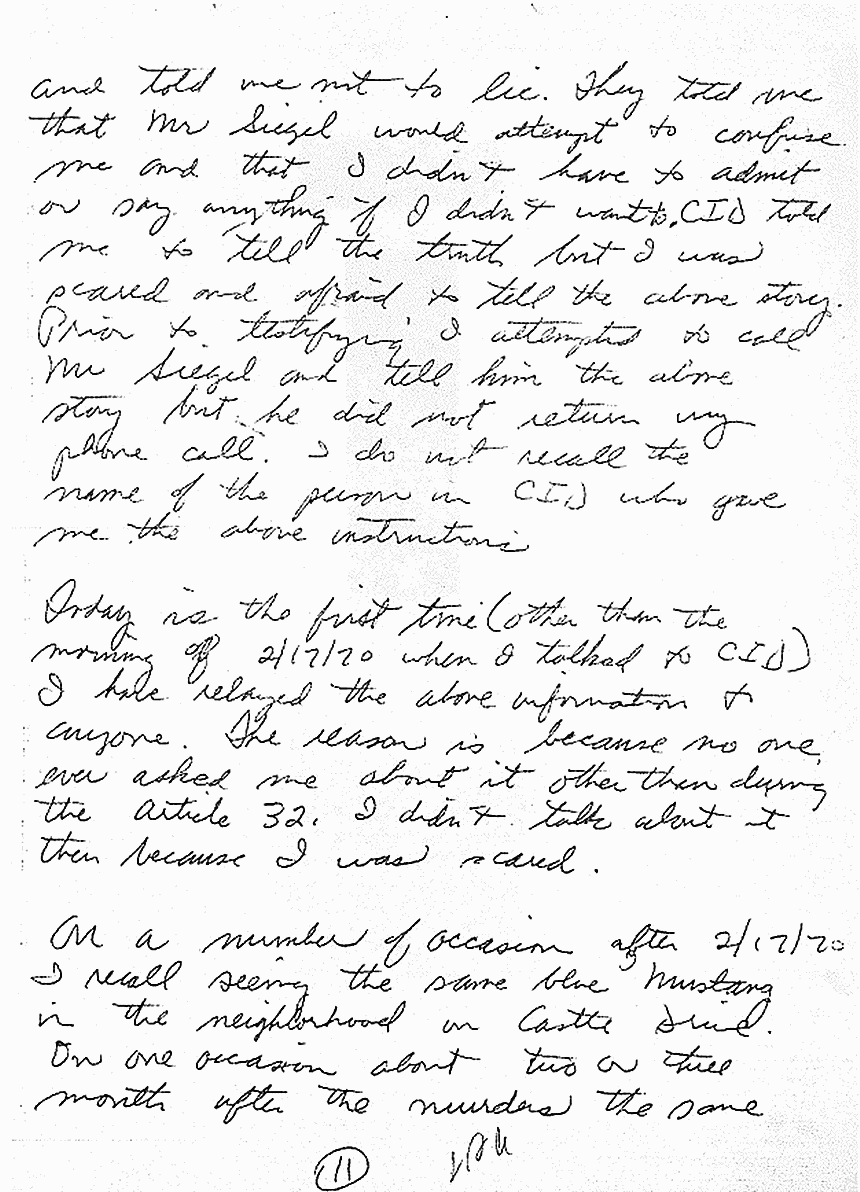 and told me not to lie. They told me
that Mr Siegel would attempt to confuse
me and that I didn't have to admit
or say anything if I didn't want to. CID told
me to tell the truth but I was
scared and afraid to tell the above story.
Prior to testifying I attempted to call
Mr Siegel and tell him the above
story but he did not return my
phone call. I do not recall the
name of the person in CID who gave
me the above instructions
Today is the first time (other than the
morning of 2/17/70 when I talked to CID)
I have relayed the above information to
anyone. The reason is because no one
ever asked me about it other than during
the Article 32. I didn't talk about it
then because I was scared.
On a number of occasion after 2/17/70
I recall seeing the same blue Mustang
in the neighborhood on Castle Drive.
On one occasion about two or three
month after the murders the same
11